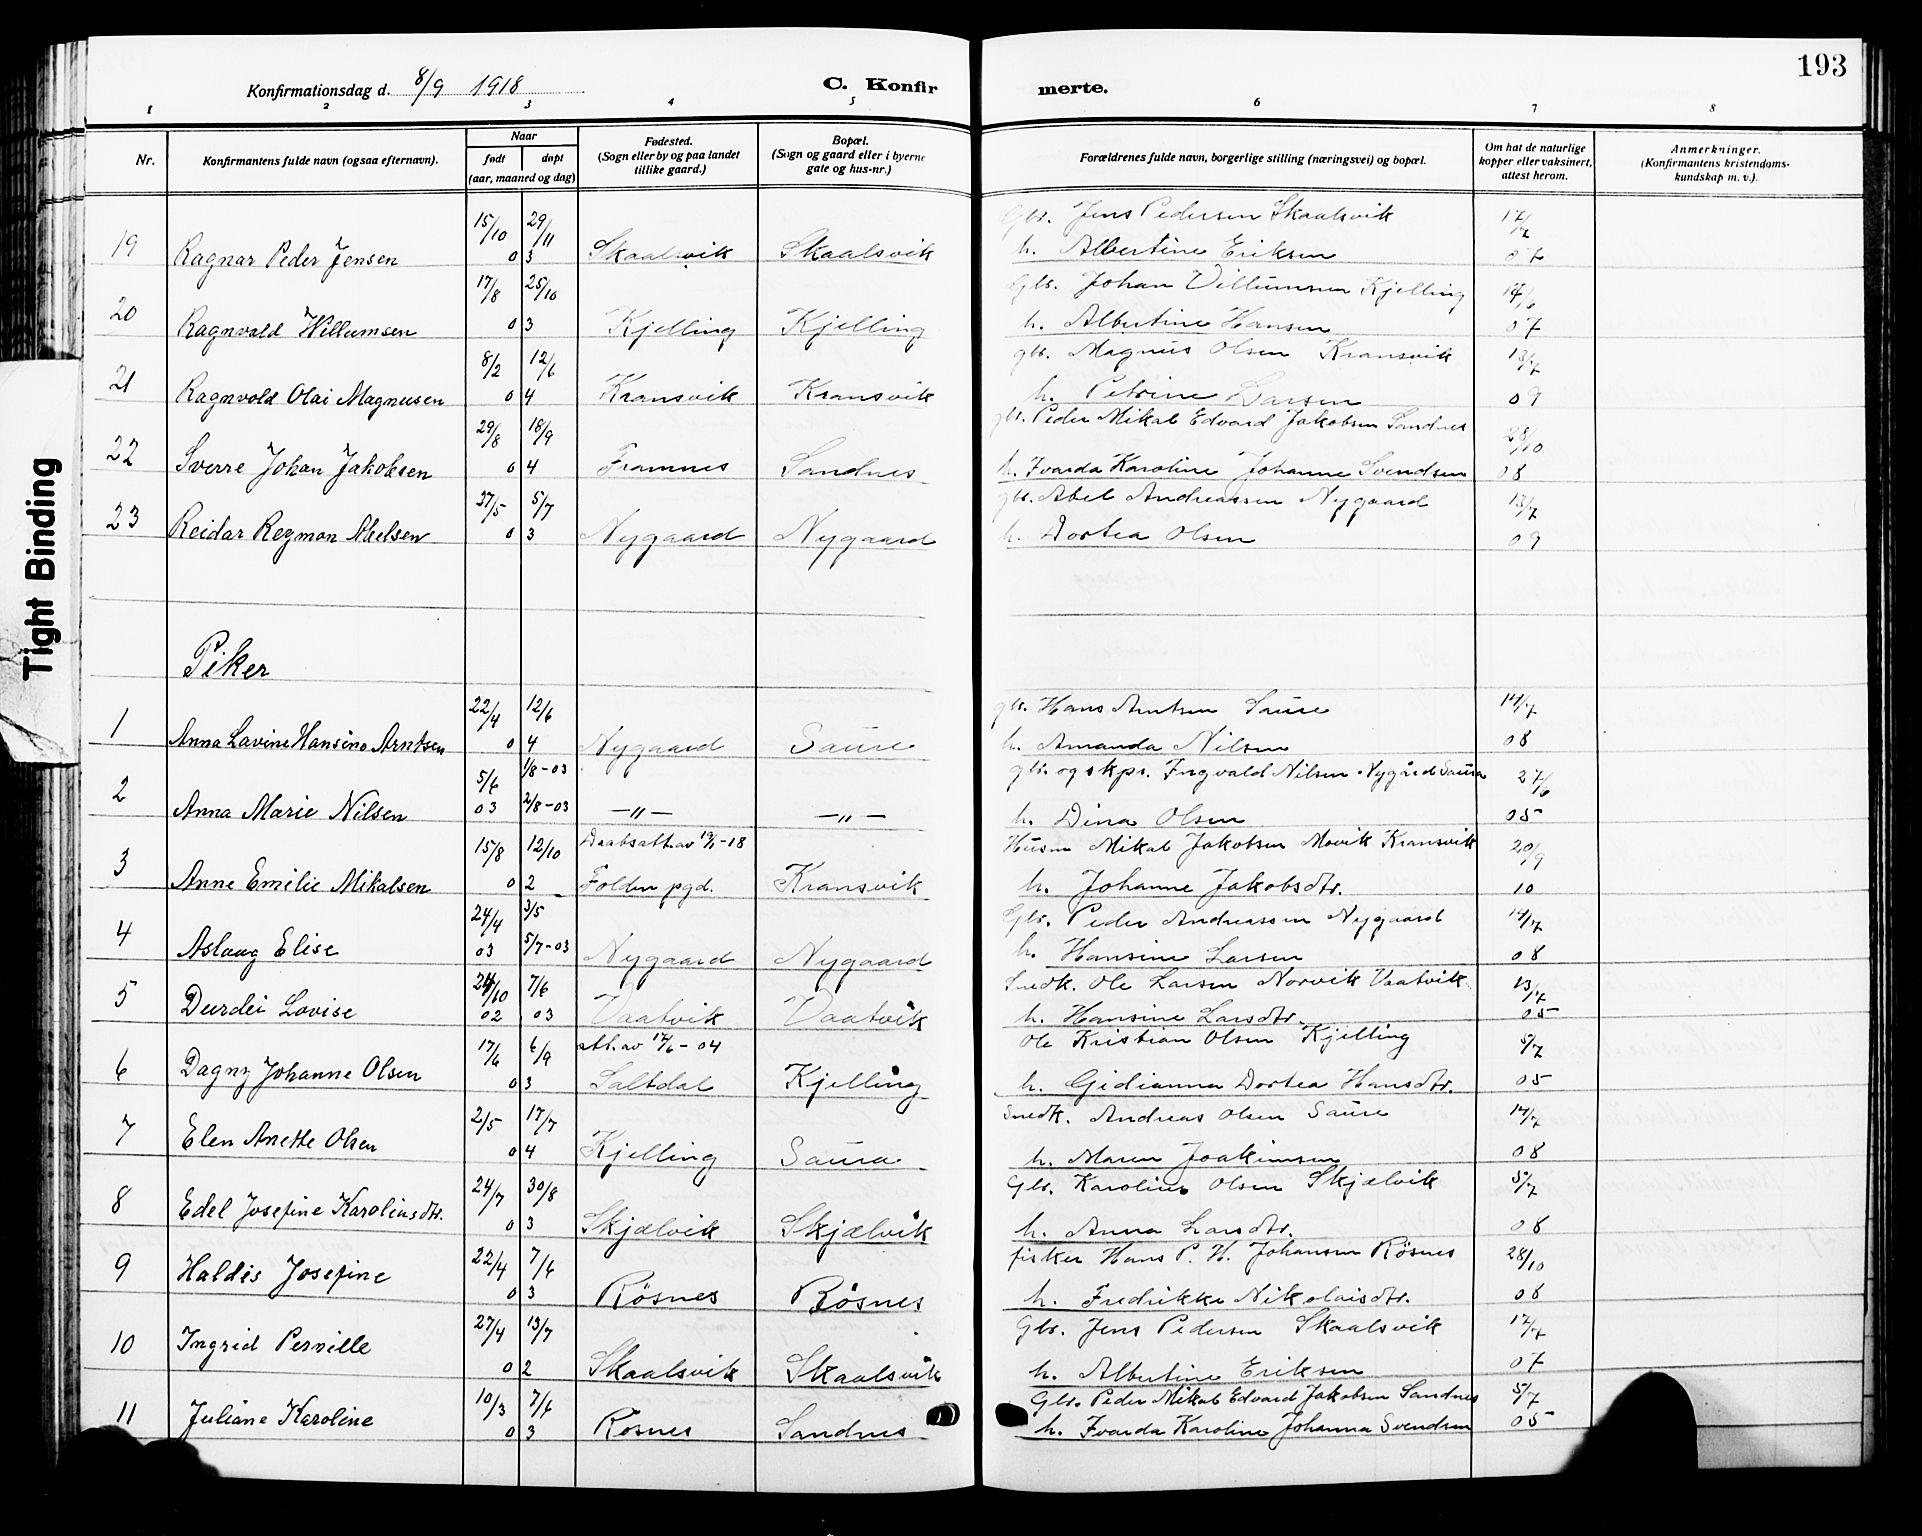 193
Konfirmationsdag d. 8/9 1918
C. Konfirmerte.
1 2 3 4 5 6 7 8
Nr.
Konfirmantens fulde navn (ogsaa efternavn).
Naar
født døpt
(aar, maaned og dag)
Fødested.
(Sogn eller by og paa landet
tillike gaard.)
Bopæl.
(Sogn og gaard eller i byerne
gate og hus-nr.)
Forældrenes fulde navn, borgerlige stilling (næringsvei) og bopæl.
Om hat de naturlige
kopper eller vaksinert,
attest herom.
Anmerkninger.
(Konfirmantens kristendoms-
kundskap m. v.).
15/10 29/11 Gbr. Jens Pedersen Skaalsvik 17/7
19 Ragnar Peder Jensen 0 3 Skaalsvik Skaalsvik h. Albertine Eriksen 07
17/8 25/10 Gbr. Johan Villumsen Kjelling
20 Ragnvald Willumsen 0 3 Kjelling Kjelling h. Albertine Hansen 07
8/2 12/6 gbr. Magnus Olsen Kransvik 13/7
21 Ragnvold Olai Magnusen 0 4 Kransvik Kransvik h. Petrine Larsen 09
29/8 18/9 gbr. Peder Mikal Edvard Jakobsen Sandnes 28/10
22 Sverre Johan Jakobsen 0 4 Framnes Sandnes h. Ivarda Karoline Johanne Svendsen 08
27/5 5/7 gbr. Abel Andreassen Nygaard 13/7
23 Reidar Regmon Abelsen 0 3 Nygaard Nygaard h. Dortea Olsen 09
Piker
22/4 12/6 gbr. Hans Arntsen Saure 14/7
1 Anna Lavine Hansine Arntsen 0 4 Nygaard Saure h. Amanda Nilsen 08
5/6 1/8-03 gbr. og skpr. Ingvald Nilsen Nygård Saura 27/6
2 Anna Marie Nilsen 03 2/8-03 —„— —„— h. Dina Olsen 05
15/8 12/10 Daabsatt. av -18 Husm Mikal Jakobsen Movik Kransvik 20/9
3 Anne Emilie Mikalsen 0 2 Folden pgd. Kransvik h. Johanne Jakobsdtr. 10
24/4 3/5 Gbr. Peder Andreassen Nygaard 14/7
4 Aslaug Elise 03 5/7-03 Nygaard Nygaard h. Hansine Larsen 08
24/10 7/6 Snedk. Ole Larsen Norvik Vaatvik 13/7
5 Durdei Lovise 02 03 Vaatvik Vaatvik h. Hansine Larsdtr. 05
17/6 6/9 att. av 17/6-04 Ole Kristian Olsen Kjelling 5/7
6 Dagny Johanne Olsen 0 3 Saltdal Kjelling h. Gidianna Dortea Hansdtr. 05
2/5 17/7 Snedk. Andreas Olsen Saure 14/7
7 Elen Anette Olsen 0 4 Kjelling Saura h. Maren Joakimsen 08
24/7 30/8 Gbr. Karolius Olsen Skjælvik 5/7
8 Edel Josefine Karoliusdtr. 0 3 Skjælvik Skjælvik h. Anna Larsdtr. 08
22/4 7/6 fisker Hans P. H. Johansen Røsnes 28/10
9 Haldis Josefine 0 3 Røsnes Røsnes h. Fredrikke Nikolaisdtr. 08
27/4 13/7 Gbr. Jens Pedersen Skaalsvik 17/7
10 Ingrid Pernille 0 2 Skaalsvik Skaalsvik h. Albertine Eriksen 07
10/3 7/6 Gbr. Peder Mikal Edvard Jakobsen Sandnes 5/7
11 Juliane Karoline 0 3 Røsnes Sandnes h. Ivarda Karoline Johanna Svendsen 05
Tight Binding